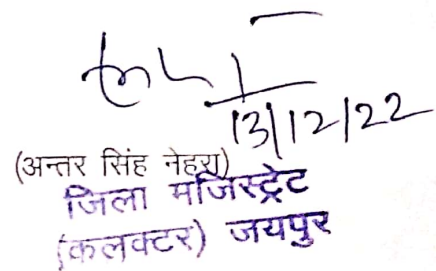 13/12/22
(अन्तर सिंह नेहरा)
जिला मजिस्ट्रेट
(कलक्टर) जयपुर